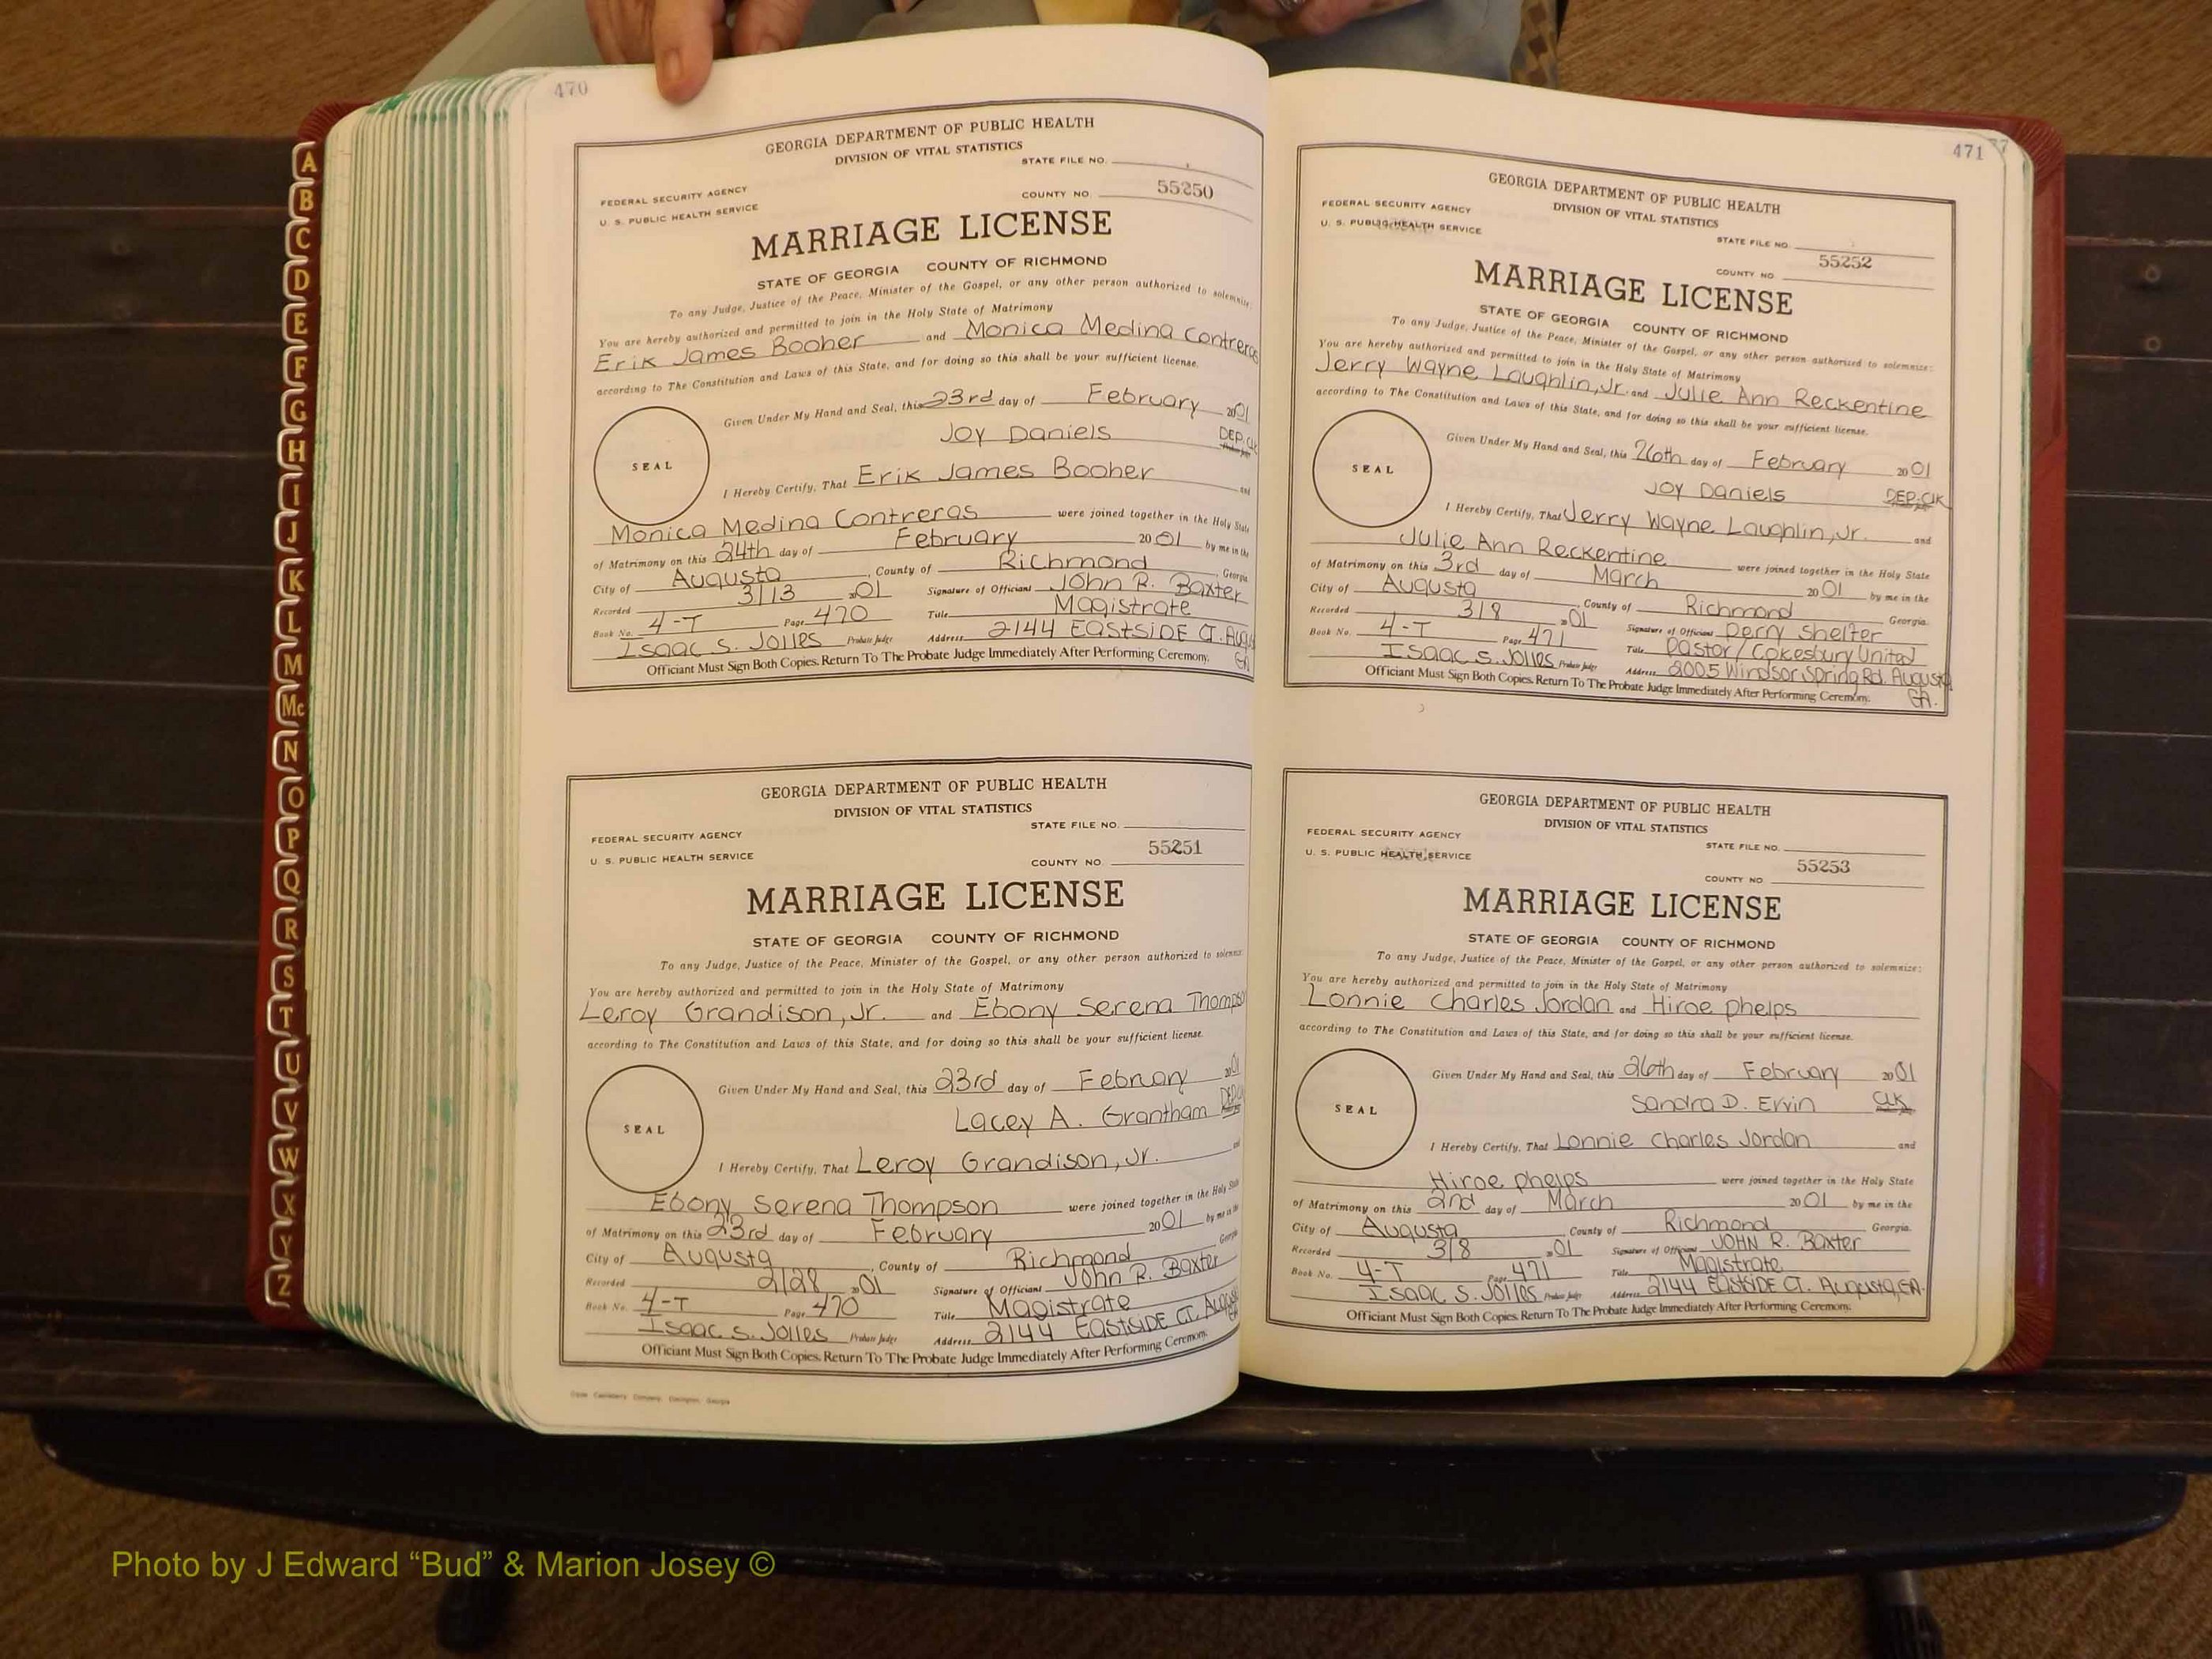 470
GEORGIA DEPARTMENT OF PUBLIC HEALTH
DIVISION OF VITAL STATISTICS
STATE FILE NO.
FEDERAL SECURITY AGENCY
U. S. PUBLIC HEALTH SERVICE
COUNTY NO. 55250
MARRIAGE LICENSE
STATE OF GEORGIA COUNTY OF RICHMOND
To any Judge, Justice of the Peace, Minister of the Gospel, or any other person authorized to solemnize:
You are hereby authorized and permitted to join in the Holy State of Matrimony
Erik James Booher and Monica Medina Contreras
according to The Constitution and Laws of this State, and for doing so this shall be your sufficient license.
Given Under My Hand and Seal, this 23rd day of February 2001
Joy Daniels DEP. Clk
SEAL
I Hereby Certify, That Erik James Booher and
Monica Medina Contreras were joined together in the Holy State
of Matrimony on this 24th day of February 2001 by me in the
City of Augusta, County of Richmond, Georgia
Recorded 3/13 2001 Signature of Officiant John R. Baxter
Book No. 4-T Page 470 Title Magistrate
Isaac S. Jolles Probate Judge Address 2144 EastSIDE CT. Augus
GA
Officiant Must Sign Both Copies. Return To The Probate Judge Immediately After Performing Ceremony.
GEORGIA DEPARTMENT OF PUBLIC HEALTH
DIVISION OF VITAL STATISTICS
STATE FILE NO.
FEDERAL SECURITY AGENCY
U. S. PUBLIC HEALTH SERVICE
COUNTY NO. 55251
MARRIAGE LICENSE
STATE OF GEORGIA COUNTY OF RICHMOND
To any Judge, Justice of the Peace, Minister of the Gospel, or any other person authorized to solemnize:
You are hereby authorized and permitted to join in the Holy State of Matrimony
Leroy Grandison, Jr. and Ebony Serena Thompso
according to The Constitution and Laws of this State, and for doing so this shall be your sufficient license.
Given Under My Hand and Seal, this 23rd day of February 2001
Lacey A. Grantham
SEAL
I Hereby Certify, That Leroy Grandison, Jr. and
Ebony Serena Thompson were joined together in the Holy State
of Matrimony on this 23rd day of February 2001 by me in the
City of Augusta, County of Richmond Georgia
Recorded 2/28 2001 Signature of Officiant John R. Baxter
Book No. 4-T Page 470 Title Magistrate
Isaac S. Jolles Probate Judge Address 2144 EastSIDE CT. Augus
GA
Officiant Must Sign Both Copies. Return To The Probate Judge Immediately After Performing Ceremony.
471
GEORGIA DEPARTMENT OF PUBLIC HEALTH
DIVISION OF VITAL STATISTICS
FEDERAL SECURITY AGENCY
U. S. PUBLIC HEALTH SERVICE
STATE FILE NO.
COUNTY NO 55252
MARRIAGE LICENSE
STATE OF GEORGIA COUNTY OF RICHMOND
To any Judge, Justice of the Peace, Minister of the Gospel, or any other person authorized to solemnize:
You are hereby authorized and permitted to join in the Holy State of Matrimony
Jerry Wayne Laughlin, Jr. and Julie Ann Reckentine
according to The Constitution and Laws of this State, and for doing so this shall be your sufficient license.
Given Under My Hand and Seal, this 26th day of February 2001
Joy Daniels DEP. Clk
SEAL
I Hereby Certify, That Jerry Wayne Laughlin, Jr. and
Julie Ann Reckentine were joined together in the Holy State
of Matrimony on this 3rd day of March 2001 by me in the
City of Augusta, County of Richmond Georgia.
Recorded 3/8 2001 Signature of Officiant Perry Shelter
Book No. 4-T Page 471 Title Pastor/Cokesbury United
Isaac S. Jolles Probate Judge Address 2005 Windsor Spring Rd. Augusta
GA.
Officiant Must Sign Both Copies. Return To The Probate Judge Immediately After Performing Ceremony.
GEORGIA DEPARTMENT OF PUBLIC HEALTH
DIVISION OF VITAL STATISTICS
FEDERAL SECURITY AGENCY
U. S. PUBLIC HEALTH SERVICE
STATE FILE NO.
COUNTY NO 55253
MARRIAGE LICENSE
STATE OF GEORGIA COUNTY OF RICHMOND
To any Judge, Justice of the Peace, Minister of the Gospel, or any other person authorized to solemnize:
You are hereby authorized and permitted to join in the Holy State of Matrimony
Lonnie Charles Jordan and Hiroe Phelps
according to The Constitution and Laws of this State, and for doing so this shall be your sufficient license.
Given Under My Hand and Seal, this 26th day of February 2001
Sandra D. Ervin Clk
SEAL
I Hereby Certify, That Lonnie Charles Jordan and
Hiroe Phelps were joined together in the Holy State
of Matrimony on this 2nd day of March 2001 by me in the
City of Augusta County of Richmond Georgia.
Recorded 3/8 2001 Signature of Officiant JOHN R. Baxter
Book No. 4-T Page 471 Title Magistrate
Isaac S. Jolles Probate Judge Address 2144 EastSIDE CT. Augusta, GA.
Officiant Must Sign Both Copies. Return To The Probate Judge Immediately After Performing Ceremony.
A
B
C
D
E
F
G
H
I
J
K
L
M
Mc
N
O
P
Q
R
S
T
U
V
W
X
Y
Z
Photo by J Edward “Bud” & Marion Josey ©